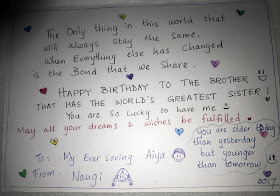 The Only thing in this world that
will always stay the same.
When Everything else has changed
is the Bond that we Share.
HAPPY BIRTHDAY TO THE BROTHER
THAT HAS THE WORLD'S GREATEST SISTER!
You are So Lucky to have me
May all your dreams & wishes be fulfilled.
You are older today
than yesterday
but younger
than tomorrow
To: My Ever Loving Aiya
From: Nangi
2017